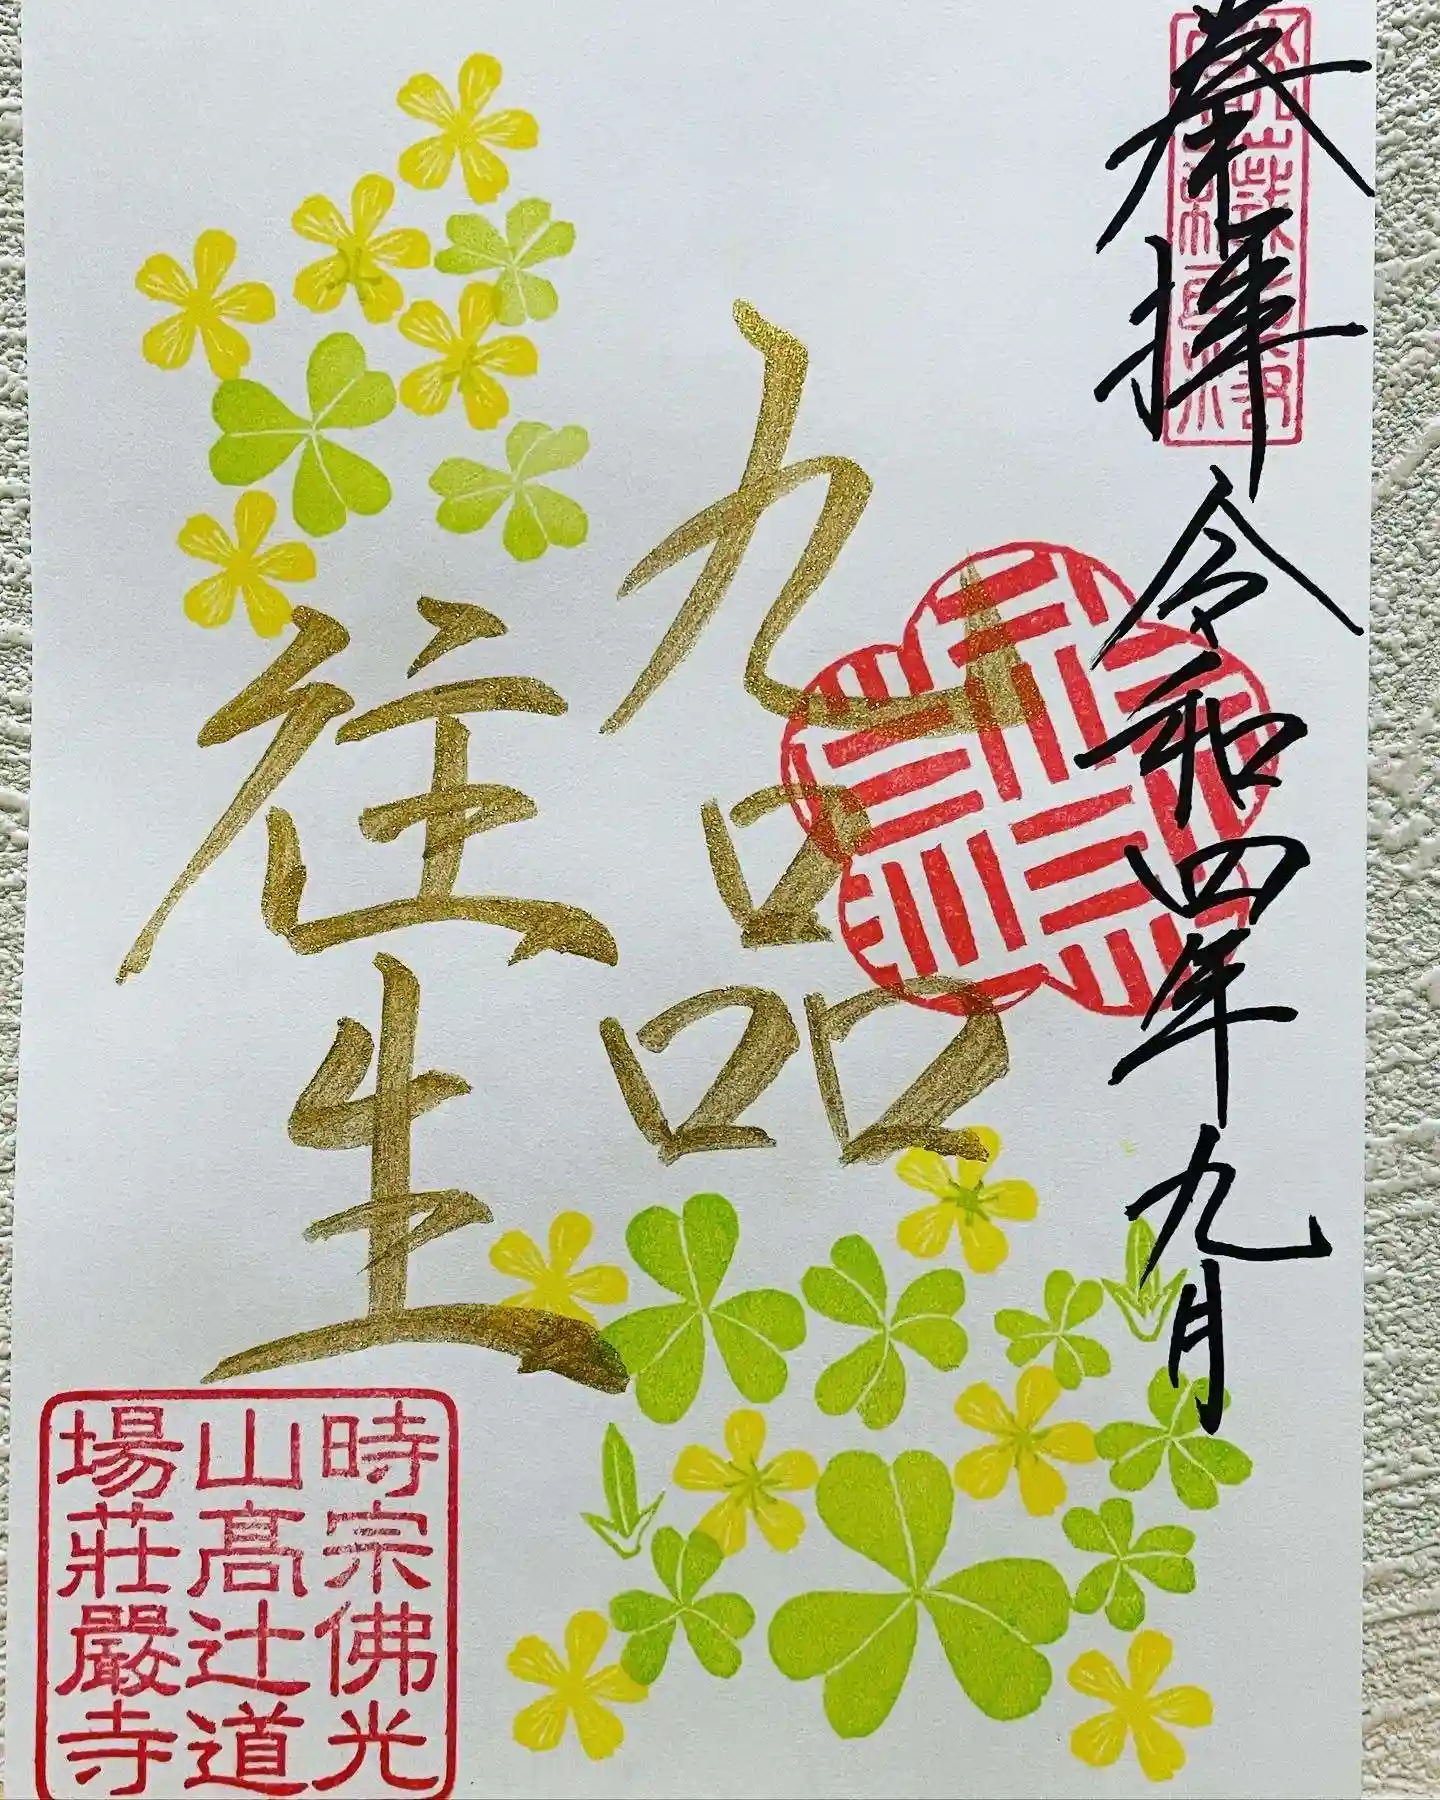 奉拝 令和四年九月
九品
往生
時宗佛光
山髙辻道
場莊嚴寺